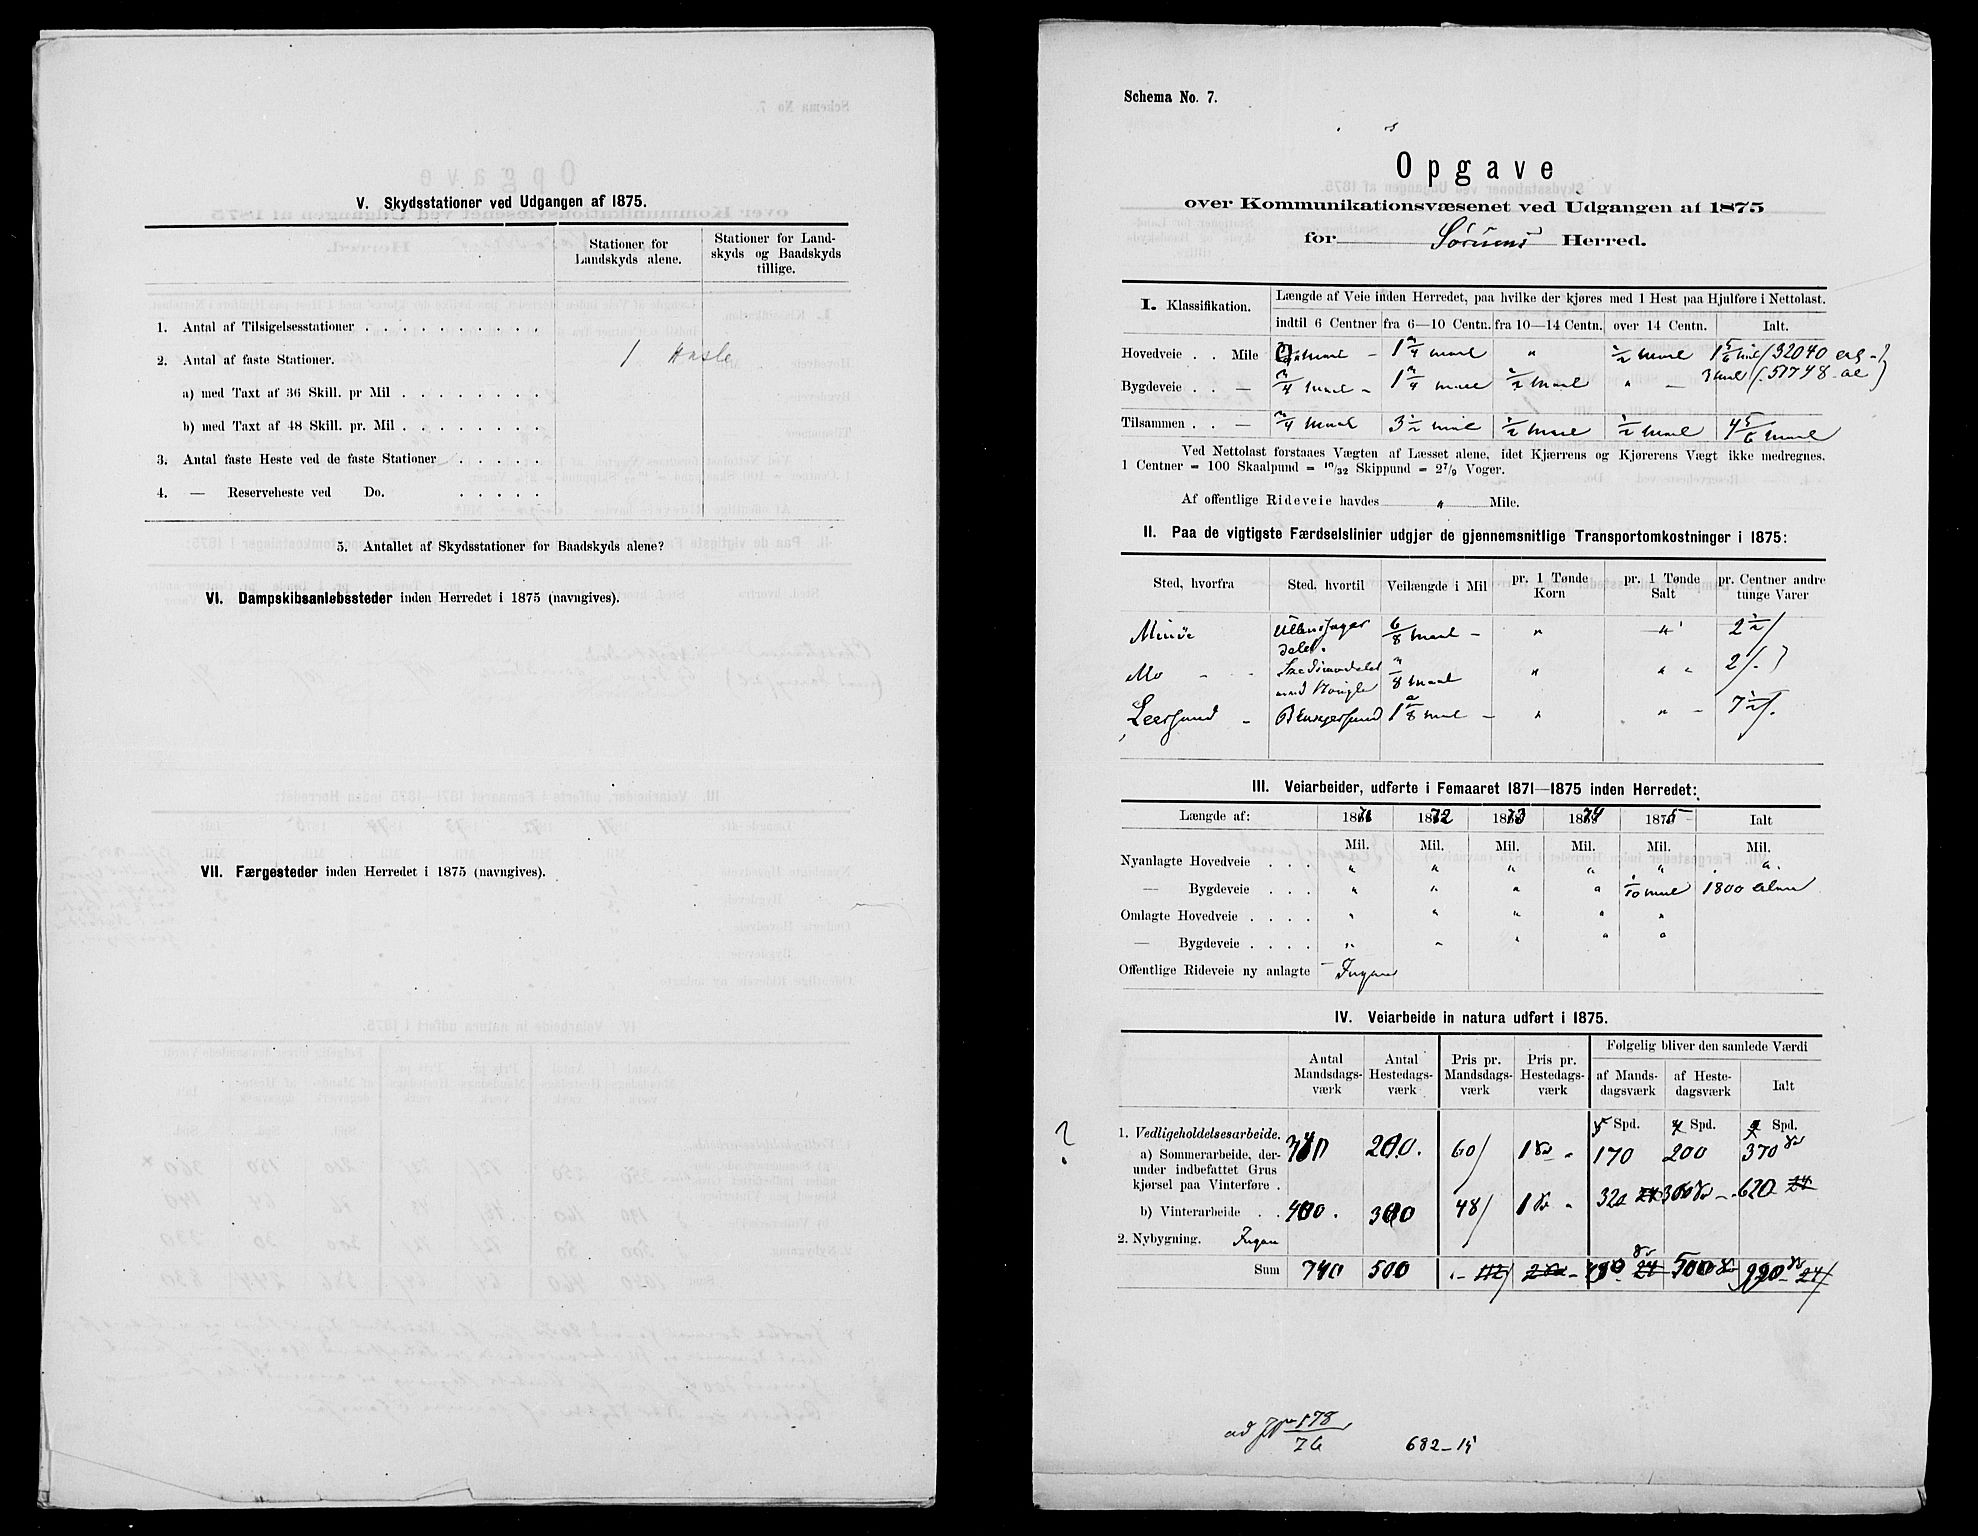 V. Skydsstationer ved Udgangen af 1875.
Stationer for Landskyds alene.
Stationer for Landskyds og Baadskyds tillige.
1. Antal af Tilsigelsesstationer . . . . . . . . . .
2. Antal af faste Stationer. 1 Hasle
a) med Taxt af 36 Skill. pr Mil . . . . . . . .
b) med Taxt af 48 Skill. pr. Mil . . . . . . . .
3. Antal faste Heste ved de faste Stationer . . . . .
4. — Reserveheste ved Do. . . . . .
5. Antallet af Skydsstationer for Baadskyds alene?
VI. Dampskibsanløbssteder inden Herredet i 1875 (navngives).
VII. Færgesteder inden Herredet i 1875 (navngives).
Schema No. 7.
Opgave
over Kommunikationsvæsenet ved Udgangen af 1875
for Sørums Herred.
I. Klassifikation. Længde af Veie inden Herredet, paa hvilke der kjøres med 1 Hest paa Hjulføre i Nettolast.
indtil 6 Centner fra 6—10 Centn. fra 10—14 Centn. over 14 Centn. Ialt.
Hovedveie . . Mile 1 3/4 " 1/2 1 5/6 (32040
Bygdeveie . . — 3/4 1 3/4 1/2 " 3 (51748
Tilsammen . . — 3/4 3 1/2 1/2 1/2 4 5/6
Ved Nettolast forstaaes Vægten af Læsset alene, idet Kjærrens og Kjørerens Vægt ikke medregnes.
1 Centner = 100 Skaalpund = 10/32 Skippund = 2 7/9 Voger.
Af offentlige Rideveie havdes " Mile.
II. Paa de vigtigste Færdselslinier udgjør de gjennemsnitlige Transportomkostninger i 1875:
Sted, hvorfra Sted, hvortil Veilængde i Mil pr. 1 Tønde Korn pr. 1 Tønde Salt pr. Centner andre tunge Varer
6/8 " " 2 1/2
Mo /8 " " 2
Leersund 1 /8 " " 7 1/2
III. Veiarbeider, udførte i Femaaret 1871—1875 inden Herredet:
Længde af: 1871 1872 1873 1874 1875 Ialt
Mil. Mil. Mil. Mil. Mil. Mil.
Nyanlagte Hovedveie . . . " " " " " "
— Bygdeveie . . . " " " " 1/10 1800
Omlagte Hovedveie . . . . " " " " "
— Bygdeveie . . . . " " " " "
Offentlige Rideveie ny anlagte Ingen
IV. Veiarbeide in natura udført i 1875.
Antal Mandsdagsværk Antal Hestedagsværk Pris pr. Mandsdagsværk Pris pr. Hestedagsværk Følgelig bliver den samlede Værdi
af Mandsdagsværk af Hestedagsværk Ialt
Spd. Spd. Spd.
?
1. Vedligeholdelsesarbeide.
a) Sommerarbeide, derunder indbefattet Gruskjørsel paa Vinterføre . 340 200. 60 1 170 200 370
b) Vinterarbeide . . 400. 300 48 1 320 24 300 620 24
2. Nybygning. Ingen
Sum 740 500 490 24 500 990 24
178
76
682-15